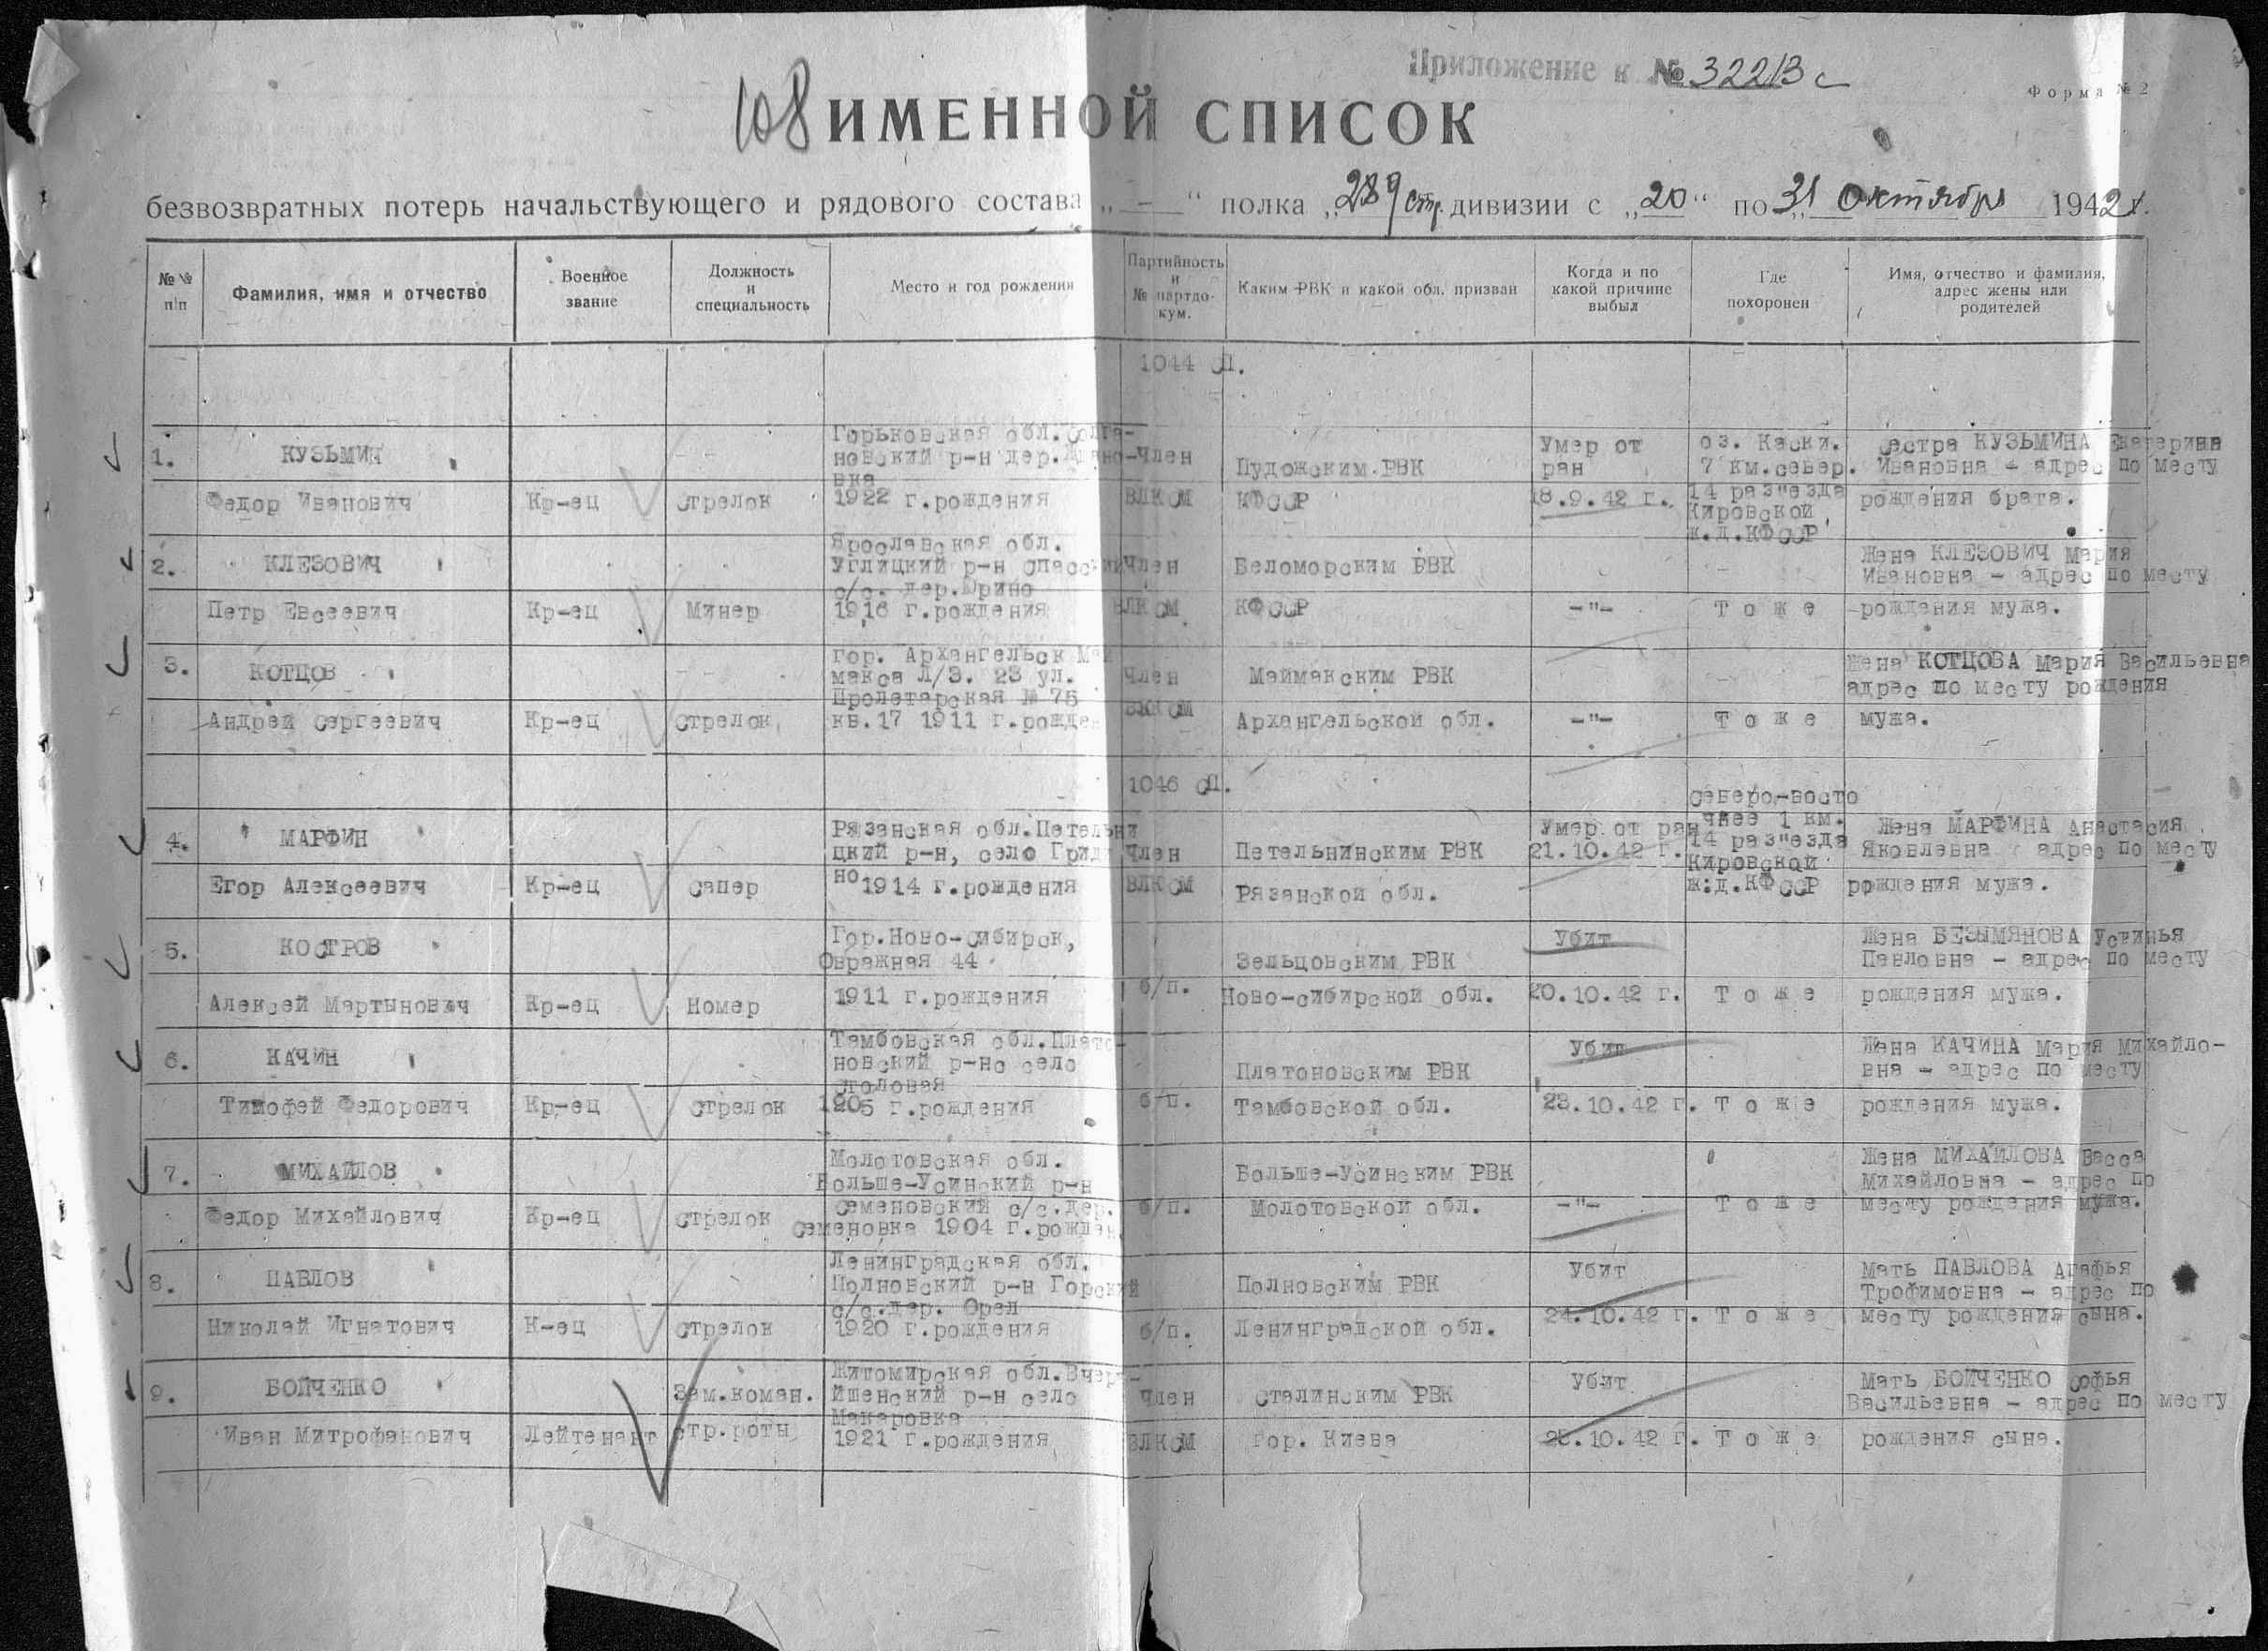 Приложение к № 32213с
Форма № 2
108 ИМЕННОЙ СПИСОК
безвозвратных потерь начальствующего и рядового состава „ - “ полка „289 стр. дивизии с „20“ по „31 октября 1942 г.
№№ п/п
Фамилия, имя и отчество
Военное звание
Должность и специальность
Место и год рождения
Партийность и № партдокум.
Каким РВК и какой обл. призван
Когда и по какой причине выбыл
Где похоронен
Имя, отчество и фамилия, адрес жены или родителей
1044 сп.
1.
КУЗЬМИН
Федор Иванович
Кр-ец
Стрелок
Горьковская обл.
новский р-н дер.
вка
1922 г.рождения
Член
ВЛКСМ
Пудожским РВК
КФССР
Умер от
ран
18.9.42 г.
оз. Каски.
7 км.север.
14 раз"езда
Кировской
ж.д.КФССР
Сестра КУЗЬМИНА Екатерина
Ивановна - адрес по месту
рождения брата.
2.
КЛЕЗОВИЧ
Петр Евсеевич
Кр-ец
Минер
Ярославская обл.
Углицкий р-н Спасский
с/с. дер.Юрино
1916 г.рождения
Член
ВЛКСМ
Беломорским РВК
КФССР
-"-
Тоже
Жена КЛЕЗОВИЧ Мария
Ивановна - адрес по месту
рождения мужа.
3.
КОТЦОВ
Андрей Сергеевич
Кр-ец
Стрелок
гор. Архангельск Май
макса Л/З. 23 ул.
Пролетарская № 75
кв.17 1911 г.рожден
Член
Маймакским РВК
Архангельской обл.
-"-
Тоже
Жена КОТЦОВА Мария Васильевна
адрес по месту рождения
мужа.
1046 сп.
4.
МАРФИН
Егор Алексеевич
Кр-ец
Сапер
Рязанская обл.Петельни
цкий р-н, село Гриди
но 1914 г.рождения
Член
ВЛКСМ
Петельнинским РВК
Рязанской обл.
Умер от ран
21.10.42 г.
Северо-восто
чнее 1 км.
14 раз"езда
Кировской
ж.д.КФССР
Жена МАРФИНА Анастасия
Яковлевна адрес по месту
рождения мужа.
5.
КОСТРОВ
Алексей Мартынович
Кр-ец
Номер
Гор.Ново-Сибирск,
Овражная 44
1911 г.рождения
б/п.
Зельцовским РВК
Ново-сибирской обл.
Убит
20.10.42 г.
Тоже
Жена БЕЗЫМЯНОВА Устинья
Павловна - адрес по месту
рождения мужа.
6.
КАЧИН
Тимофей Федорович
Кр-ец
Стрелок
Тамбовская обл.Плато-
новский р-но село
Столовая
1905 г.рождения
б/п.
Платоновским РВК
Тамбовской обл.
Убит
23.10.42 г.
Тоже
Жена КАЧИНА Мария Михайло-
вна - адрес по месту
рождения мужа.
7.
МИХАЙЛОВ
Федор Михайлович
Кр-ец
Стрелок
Молотовская обл.
Больше-Усинский р-н
Семеновский с/с.дер.
Семеновка 1904 г.рожден.
б/п.
Больше-Усинским РВК
Молотовской обл.
-"-
Тоже
Жена МИХАЙЛОВА Васса
Михайловна - адрес по
месту рождения мужа.
8.
ПАВЛОВ
Николай Игнатович
К-ец
Стрелок
Ленинградская обл.
Полновский р-н Горский
с/с.дер. Орел
1920 г.рождения
б/п.
Полновским РВК
Ленинградской обл.
Убит
24.10.42 г.
Тоже
Мать ПАВЛОВА Агафья
Трофимовна - адрес по
месту рождения сына.
9.
БОЙЧЕНКО
Иван Митрофанович
Лейтенант
Зам.коман.
стр.роты
Житомирская обл.Вчера-
йшенский р-н село
Макаровка
1921 г.рождения
Член
ВЛКСМ
Сталинским РВК
Гор. Киева
Убит
25.10.42 г.
Тоже
Мать БОЙЧЕНКО Софья
Васильевна - адрес по месту
рождения сына.